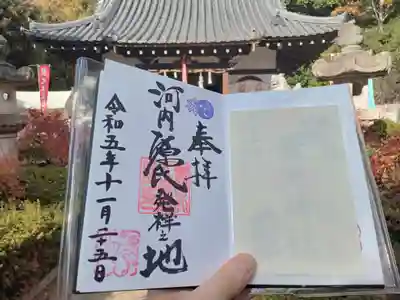 奉拝
河内源氏発祥之地
令和五年十一月二十五日